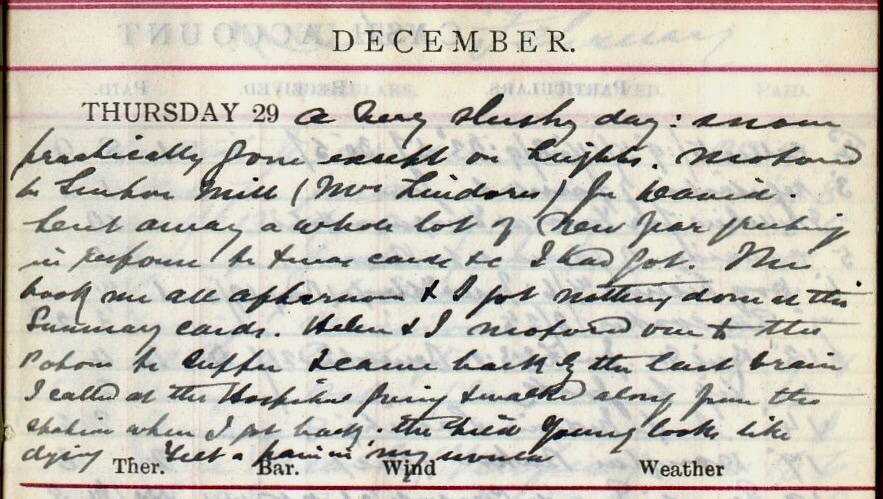 DECEMBER.
THURSDAY 29 A very slushy day: snow
practically gone except on heights. Motored
to Mill (Mrs Lindores) for David.
Sent away a whole lot of New Year greeting
in response to Xmas cards &c I had got. This
took me all afternoon & I got nothing done at the
Summary cards. Helen & I motored over to the
to supper & came back by the last train
I called at the Hospital going & walked along from the
station when I got back. The child Young looks like
dying Felt a pain in my
Ther. Bar. Wind Weather